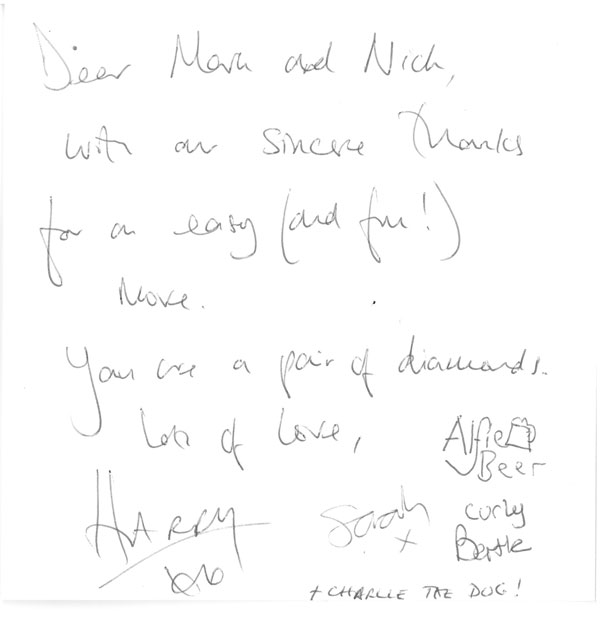 Dear Mark and Nick,
with our sincere thanks
for an easy (and fun!)
Move.
You are a pair of diamonds.
Lots of love,
HARRY
Sarah
x
Alfie
Beer
curly
Bertie
+ CHARLIE THE DOG!